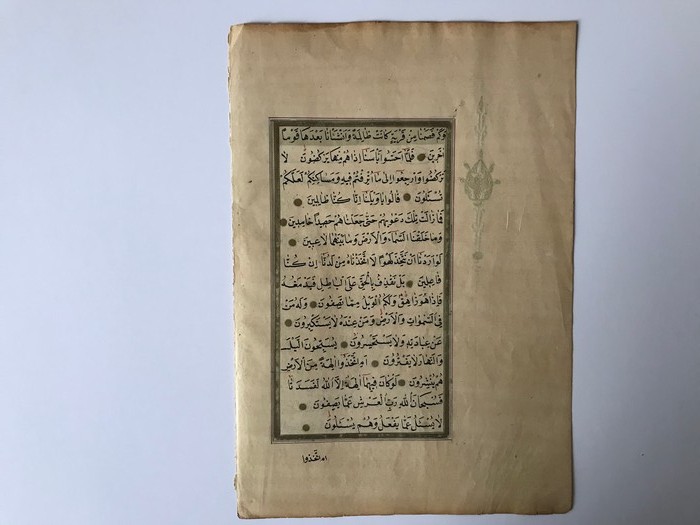 وَكَمْ قَصَمْنَا مِنْ قَرْيَةٍ كَانَتْ ظَالِمَةً وَاَنْشَأْنَا بَعْدَهَا قَوْمًا
اٰخَرِينَ فَلَمَّا اَحَسُّوا بَاْسَنَا اِذَا هُمْ مِنْهَا يَرْكُضُونَ لَا
تَرْكُضُوا وَارْجِعُوا اِلٰى مَا اُتْرِفْتُمْ فِيهِ وَمَسَاكِنِكُمْ لَعَلَّكُمْ
تُسْئَلُونَ قَالُوا يَا وَيْلَنَا اِنَّا كُنَّا ظَالِمِينَ
فَمَا زَالَتْ تِلْكَ دَعْوٰيهُمْ حَتّٰى جَعَلْنَاهُمْ حَصِيدًا خَامِدِينَ
وَمَا خَلَقْنَا السَّمَاءَ وَالْاَرْضَ وَمَا بَيْنَهُمَا لَاعِبِينَ
لَوْ اَرَدْنَا اَنْ نَتَّخِذَ لَهْوًا لَاتَّخَذْنَاهُ مِنْ لَدُنَّا اِنْ كُنَّا
فَاعِلِينَ بَلْ نَقْذِفُ بِالْحَقِّ عَلَى الْبَاطِلِ فَيَدْمَغُهُ
فَاِذَا هُوَ زَاهِقٌ وَلَكُمُ الْوَيْلُ مِمَّا تَصِفُونَ وَلَهُ مَنْ
فِي السَّمٰوَاتِ وَالْاَرْضِ وَمَنْ عِنْدَهُ لَا يَسْتَكْبِرُونَ
عَنْ عِبَادَتِهِ وَلَا يَسْتَحْسِرُونَ يُسَبِّحُونَ الَّيْلَ
وَالنَّهَارَ لَا يَفْتُرُونَ اَمِ اتَّخَذُوا اٰلِهَةً مِنَ الْاَرْضِ
هُمْ يُنْشِرُونَ لَوْ كَانَ فِيهِمَا اٰلِهَةٌ اِلَّا اللّٰهُ لَفَسَدَتَا
فَسُبْحَانَ اللّٰهِ رَبِّ الْعَرْشِ عَمَّا يَصِفُونَ
لَا يُسْئَلُ عَمَّا يَفْعَلُ وَهُمْ يُسْئَلُونَ
ام اتَّخَذُوا